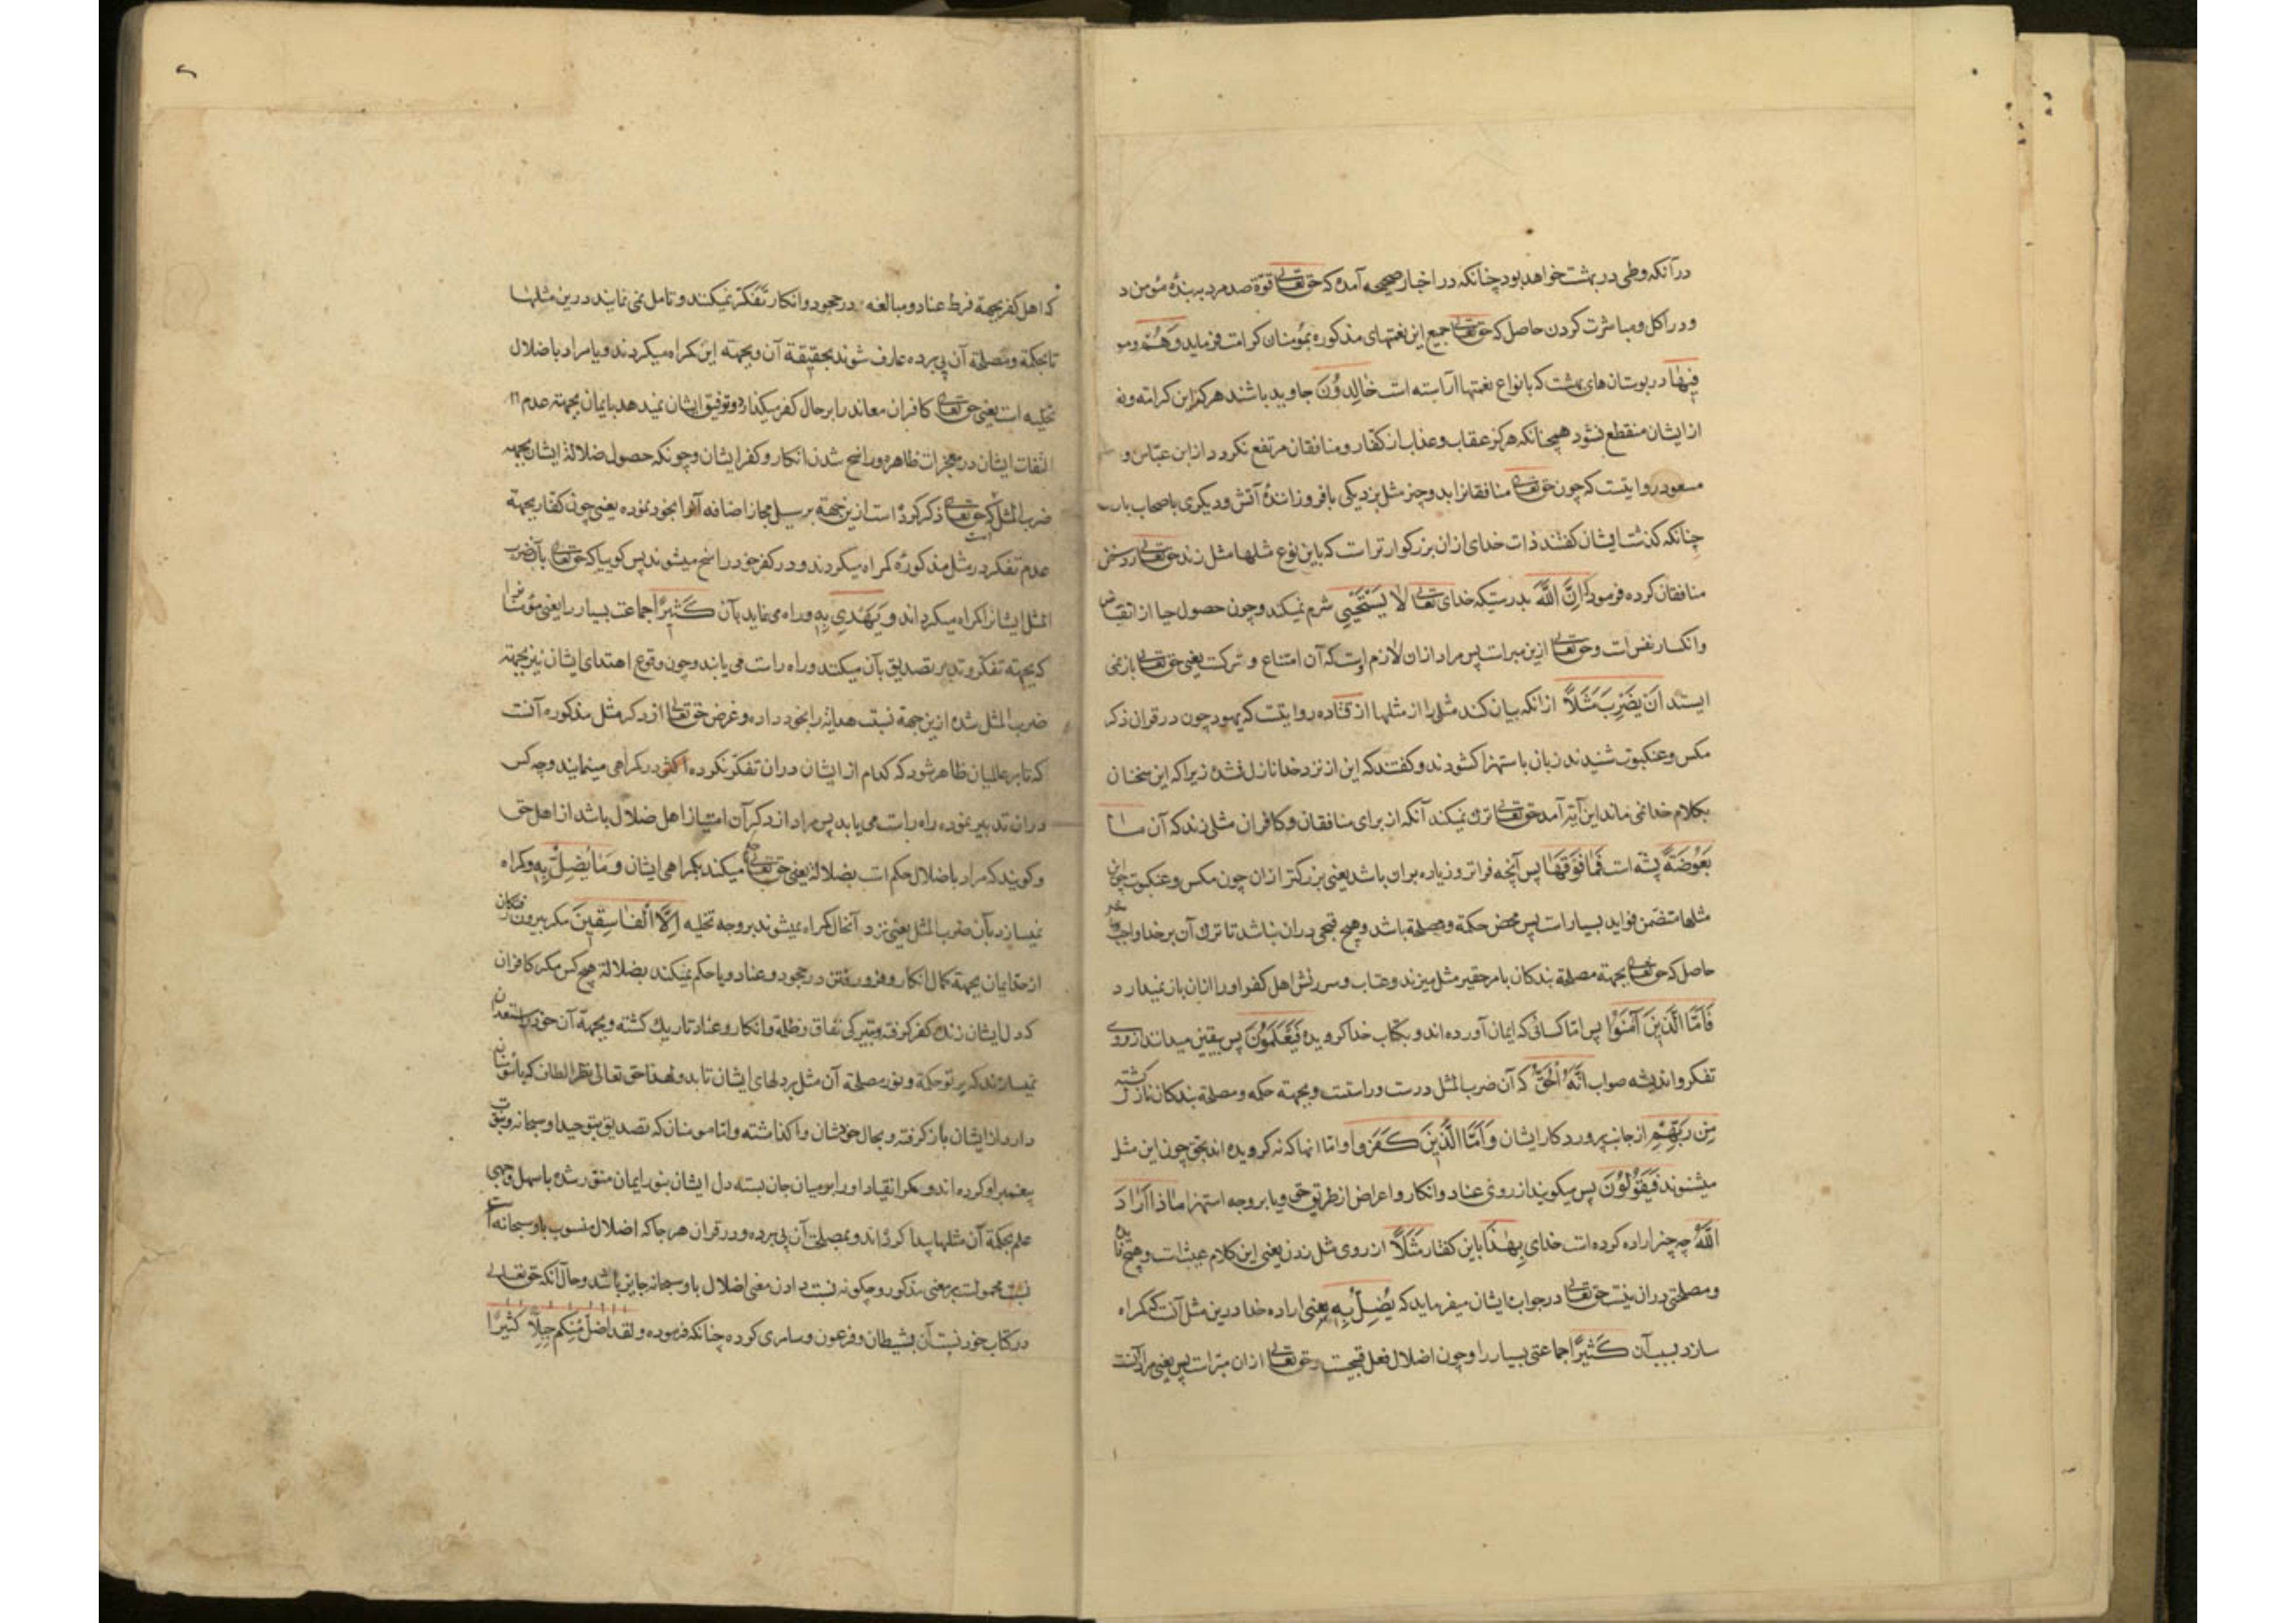 در آنکه وطی در بهشت خواهد بود چنانکه در اخبار صحیحه آمده که حق تعالی قوة صد مرد به بندهٔ مؤمن د
ودر اکل ومباشرت کردن حاصل که حق تعالی جمیع این نعمتهای مذکوره بمؤمنان کرامت فرماید وَهُمْ ومو
فِيهَا در بوستان های بهشت که بانواع نعمتها آراسته است خَالِدُونَ جاوید باشند هرکز این کرامته ونه
از ایشان منقطع نشود همچنانکه هرکز عقاب وعذاب از کفار ومنافقان مرتفع نکردد از ابن عباس و
مسعود روایتست که چون حق تعالی منافقانرا بدو چیز مثل زد یکی بافروزانندهٔ آتش ودیکری باصحاب بارـ
چنانکه کذشت ایشان کفتند ذات خدای ازان بزرکوارتر است که باین نوع مثلها مثل زند حق تعالی رد سخن
منافقان کرده فرمود که اِنَّ اللَّهَ بدرستیکه خدای تعالی لَا يَسْتَحْيِي شرم نمیکند وچون حصول حیا از انقباض
وانکسار نفس است وحق تعالی ازین مبراست پس مراد ازان لازم اوست که آن امتناع و ترکست یعنی حق تعالی باز نمی
ایستد اَنْ يَضْرِبَ مَثَلًا ازانکه بیان کند مثلی را از مثلها از قتاده روایتست که یهود چون در قران ذکر
مکس وعنکبوت شنیدند زبان باستهزا کشودند وکفتند که این از نزد خدا نازل نشده زیرا که این سخنان
بکلام خدا نمی ماند این آیه آمد حق تعالی ترک نمیکند آنکه از برای منافقان وکافران مثلی زند که آن مَا
بَعُوضَةً پشه است فَمَا فَوْقَهَا پس آنچه فراتر وزیاده بران باشد یعنی بزرکتر ازان چون مکس وعنکبوت چه این
مثلها متضمن فواید بسیار است پس محض حکمة ومصلحة باشد وهیچ قبحی دران نباشد تا ترک آن بر خدا واجب
حاصل که حق تعالی بجهته مصلحة بندکان بامر حقیر مثل میزند وعتاب وسرزنش اهل کفر اورا ازان باز نمیدارد
فَاَمَّا الَّذِينَ آمَنُوا پس اما کسانی که ایمان آورده اند وبکتاب خدا کرویده فَيَعْلَمُونَ پس بیقین میدانند از روی
تفکر واندیشه صواب اَنَّهُ الْحَقُّ که آن ضرب المثل درست وراستست وبجهته حکمه ومصلحة بندکان نازل کشته
مِنْ رَبِّهِمْ از جانب پروردکار ایشان وَاَمَّا الَّذِينَ كَفَرُوا واما انها که نه کرویده اند بحق چون این مثل
میشنوند فَيَقُولُونَ پس میکویند از روی عناد وانکار واعراض از طریق حق ویا بر وجه استهزا مَاذَا اَرَادَ
اللَّهُ چه چیز اراده کرده است خدای بِهَذَا باین کفتار مَثَلًا از روی مثل زدن یعنی این کلام عبثست وهیچ فایده
ومصلحتی دران نیست حق تعالی در جواب ایشان میفرماید که يُضِلُّ بِهِ یعنی اراده خدا درین مثل آنست که کمراه
سازد بسبب آن كَثِيرًا جماعتی بسیار را وچون اضلال فعل قبیحست وحق تعالی ازان مبراست پس یعنی مراد آنست
که اهل کفر بجهة فرط عناد ومبالغه در جحود وانکار تفکر نمیکنند وتامل نمی نمایند درین مثلها
تا بحکمة ومصلحة آن پی برده عارف شوند بحقیقة آن وبجهته این کمراه میکردند ویا مراد باضلال
تخلیه است یعنی حق تعالی کافران معاند را بر حال کفر میکذارد وتوفیق ایشان نمیدهد بایمان بجهته عدم
التفات ایشان در معجزات ظاهره وراسخ شدن انکار وکفر ایشان وچونکه حصول ضلالة ایشان بجهة
ضرب المثل که حق تعالی ذکر کرده است ازین جهة بر سبیل مجاز اضافه آنرا بخود نموده یعنی چون کفار بجهة
عدم تفکر در مثل مذکوره کمراه میکردند ودر کفر خود راسخ میشوند پس کوییا که حق تعالی بآن ضرب
المثل ایشانرا کمراه میکرداند وَيَهْدِي بِهِ وراه می نماید بآن كَثِيرًا جماعت بسیار را یعنی مؤمنانرا
که بجهته تفکر وتدبر تصدیق بآن میکنند وراه راست می یابند وچون وقوع اهتدای ایشان نیز بجهته
ضرب المثل شده ازین جهة نسبت هدایة را بخود داده وغرض حق تعالی از ذکر مثل مذکوره آنست
که تا بر عالمیان ظاهر شود که کدام از ایشان دران تفکر نکرده در کمراهی مینمایند وچه کس
دران تدبیر نموده راه راست می یابد پس مراد از ذکر آن امتیاز اهل ضلال باشد از اهل حق
وکویند که مراد باضلال حکم است بضلالة یعنی حق تعالی میکند بکمراهی ایشان وَمَا يُضِلُّ بِهِ وکمراه
نمیسازد بآن ضرب المثل یعنی نزد آنحال کمراه نمیشوند بر وجه تخلیه اِلَّا الْفَاسِقِينَ مکر بیرون رفتکان
از حد ایمان بجهة کمال انکار وفرو رفتن در جحود وعناد ویا حکم نمیکند بضلالة هیچ کس مکر کافران
که دل ایشان زنک کفر کرفته وبتیرکی نفاق وظلمة وانکار وعناد تاریک کشته وبجهة آن خود را مستعد ان
نمیسازند که پرتو حکمة ونور مصلحة آن مثل بر دلهای ایشان تابد ولهذا حق تعالی نظر الطاف که با مؤمنان
دارد از ایشان باز کرفته وبحال خودشان واکذاشته واما مومنان که تصدیق بتوحید او سبحانه ونبوت
پیغمبر او کرده اند وکمر انقیاد اورا بر میان جان بسته دل ایشان بنور ایمان منور شده باسهل وجهی
علم بحکمة آن مثلها پیدا کرده اند وبمصلحت آن پی برده ودر قران هر جا که اضلال منسوب باو سبحانه است
محمولست بر معنی مذکور وچکونه نسبت دادن معنی اضلال باو سبحانه جایز باشد وحال آنکه حق تعالی
در کتاب خود نسبت آن بشیطان وفرعون وسامری کرده چنانکه فرموده ولقد اضل منكم جبلا كثيرا